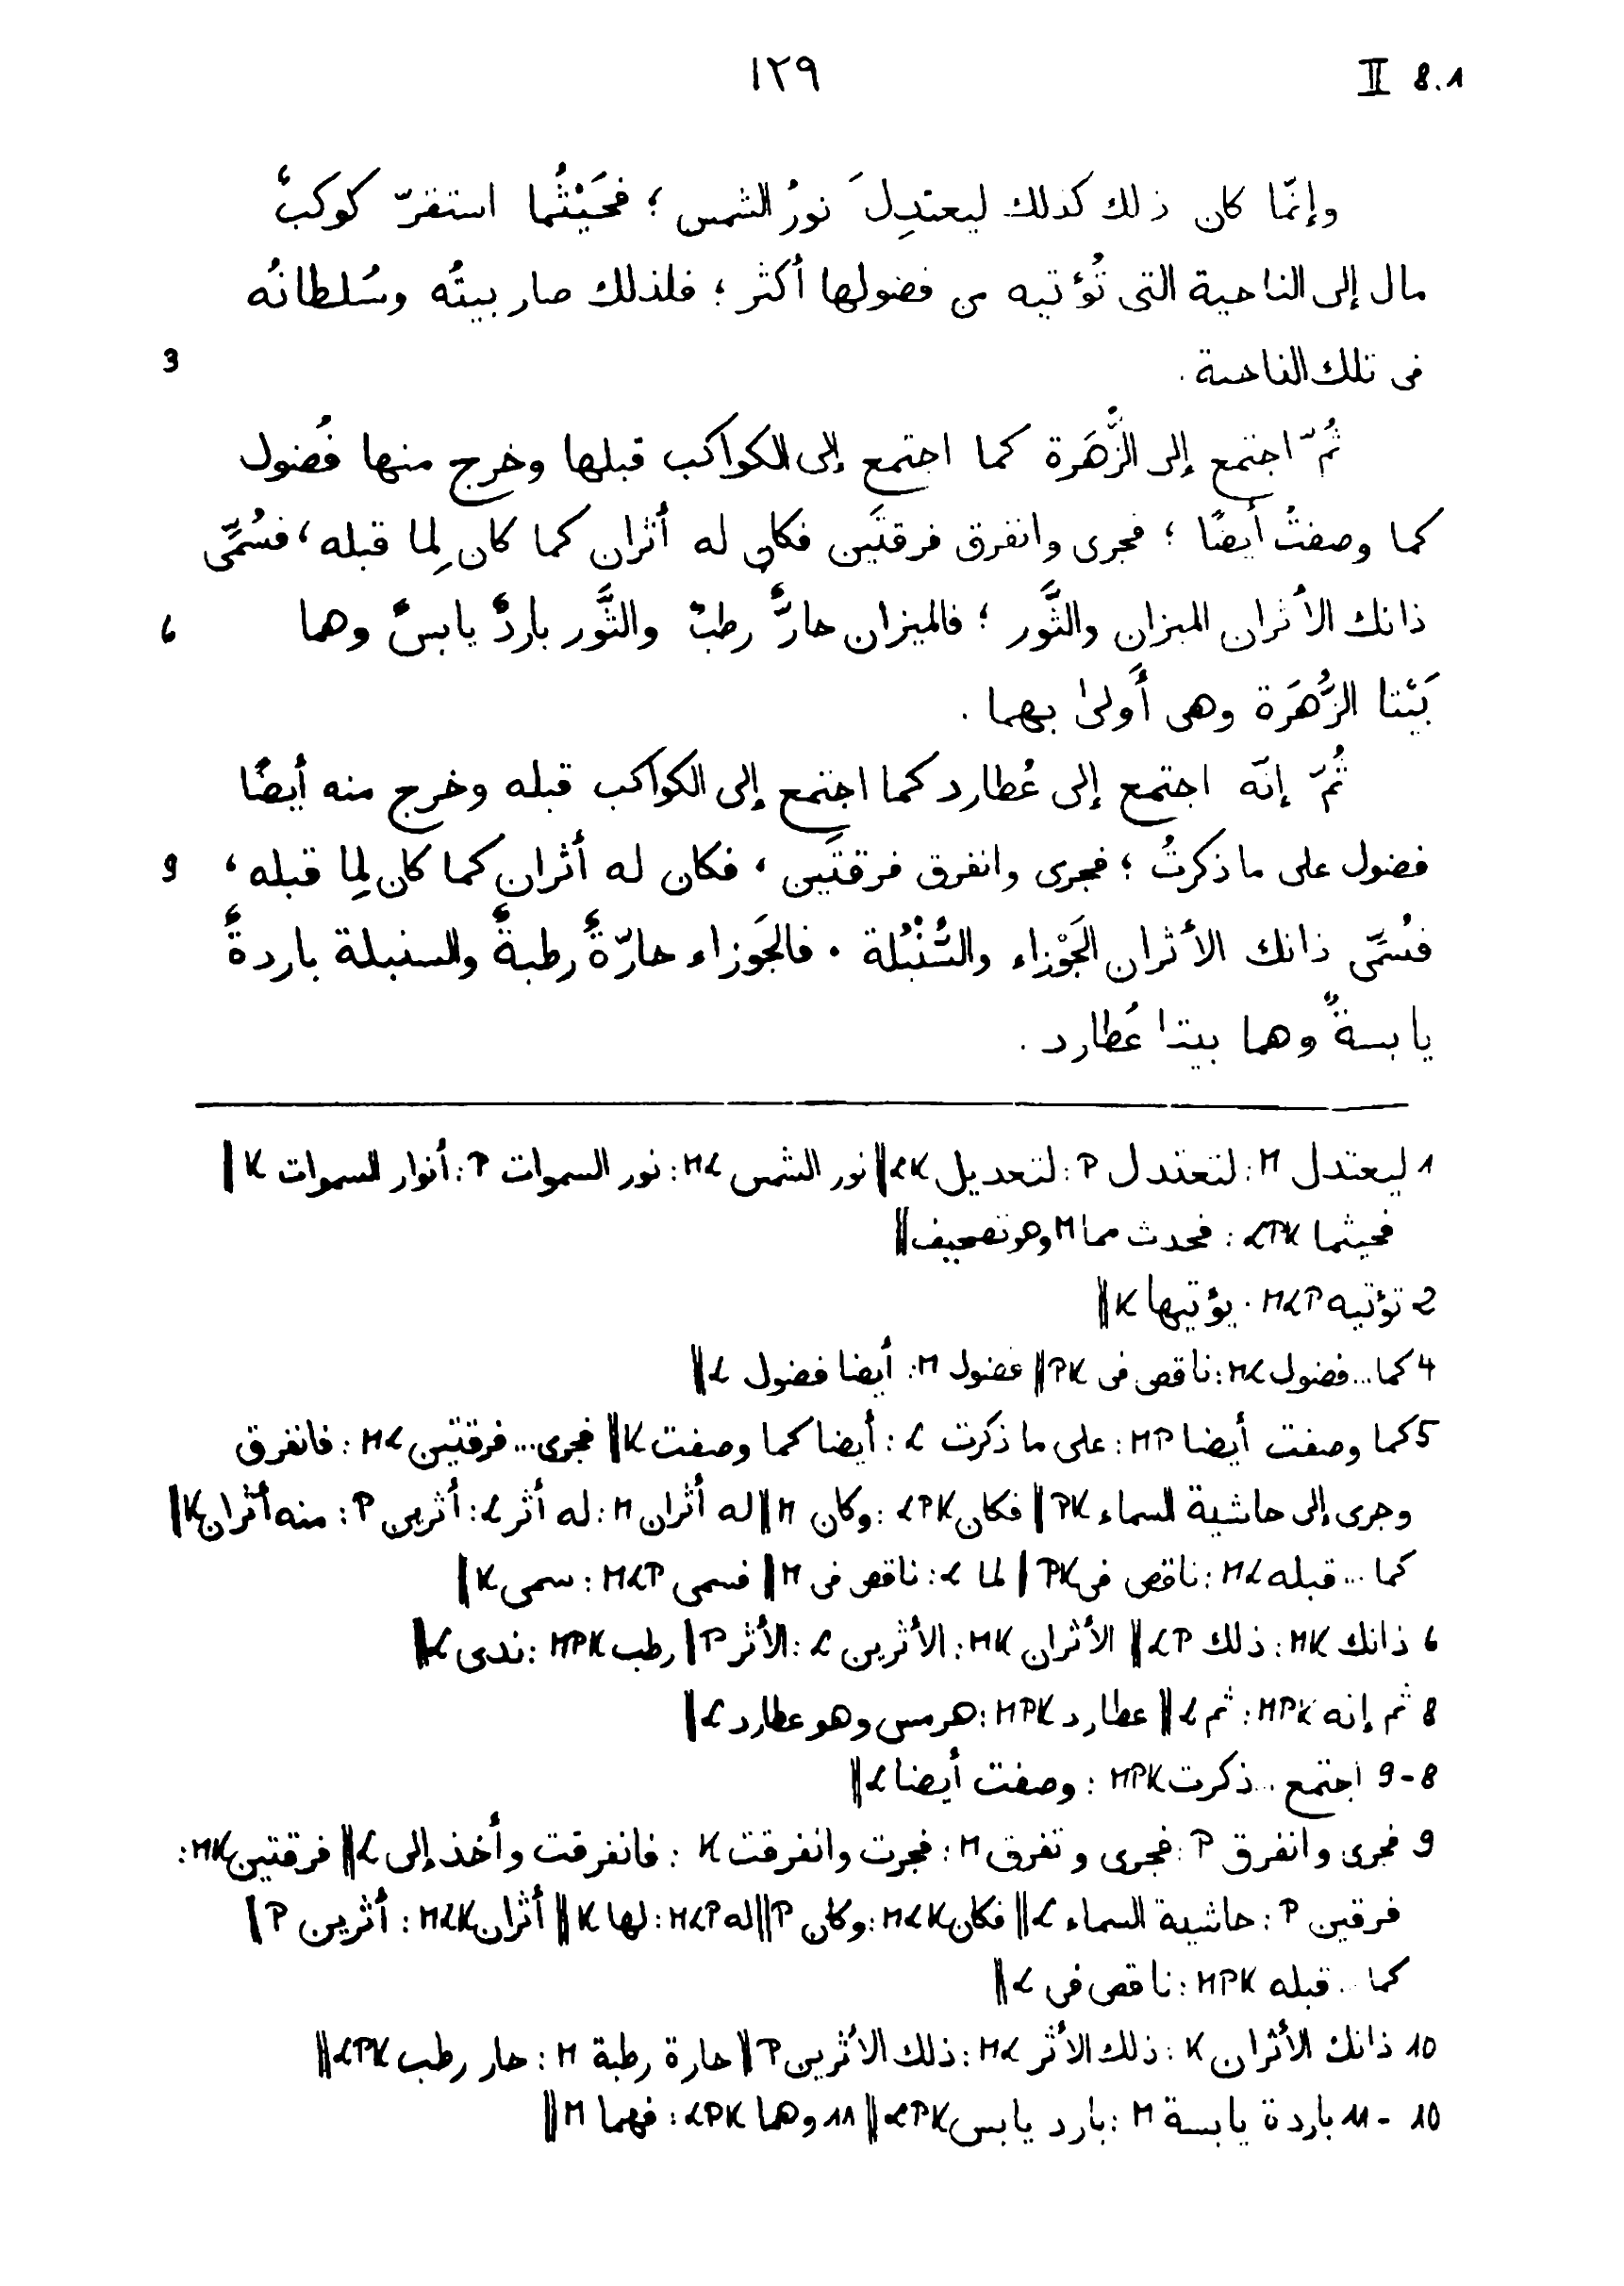 ١٢٩ II 8.1
وإنّما كان ذلك كذلك ليعتدِلَ نورُ الشمس ؛ فحَيْثُما استقرّ كوكبٌ
مال إلى الناحية التى تُؤتيه من فضولها أكثر ؛ فلذلك صار بيتُه وسُلطانُه
فى تلك الناحية . 3
ثُمّ اجتمع إلى الزُّهَرة كما اجتمع إلى الكواكب قبلها وخرج منها فُضول
كما وصفتُ أيضًا ؛ فجرى وانفرق فرقتَين فكان له أثران كما كان لِما قبله ، فسُمِّى
ذانك الأثران الميزان والثَّور ؛ فالميزان حارٌّ رطبٌ والثَّور باردٌ يابسٌ وهما 6
بَيْتا الزُّهَرَة وهى أَولىٰ بهما .
ثُمّ إنّه اجتمع إلى عُطارد كما اجتمع إلى الكواكب قبله وخرج منه أيضًا
فضول على ما ذكرتُ ؛ فجرى وانفرق فرقتَين ، فكان له أثران كما كان لِما قبله ، 9
فسُمِّى ذانك الأثران الجَوْزاء والسُّنْبُلة . فالجَوزاء حارّةٌ رطبةٌ والسنبلة باردةٌ
يابسةٌ وهما بيتا عُطارد .
1 ليعتدل M : لتعتدل P : لتعديل LK || نور الشمس ML : نور السموات P : أنوار السموات K ||
فحيثما LPK : فحدث مما M وهو تصحيف ||
2 تؤتيه MLP : يؤتيها K ||
4 كما ... فضول ML : ناقص فى PK || فضول M : أيضا فضول L ||
5 كما وصفت أيضا MP : على ما ذكرت L : أيضا كما وصفت K || فجرى ... فرقتين ML : فانفرق
وجرى إلى حاشية السماء PK || فكان LPK : وكان M || له أثران M : له أثر L : أثرين P : منه أثران K ||
كما ... قبله ML : ناقص فى PK | لما L : ناقص فى M || فسمى MLP : سمى K ||
6 ذانك MK : ذلك LP || الأثران MK : الأثرين L : الأثر P || رطب MPK : ندى L ||
8 ثم إنه MPK : ثم L || عطارد MPK : هرمس وهو عطارد L ||
8-9 اجتمع ... ذكرت MPK : وصفت أيضا L ||
9 فجرى وانفرق P : فجرى وتفرق M : فجرت وانفرقت K : فانفرقت وأخذ إلى L || فرقتين MK :
فرقين P : حاشية السماء L || فكان MLK : وكان P || له MLP : لها K || أثران MLK : أثرين P ||
كما ... قبله MPK : ناقص فى L ||
10 ذانك الأثران K : ذلك الأثر ML : ذلك الأثرين P || حارة رطبة M : حار رطب LPK ||
10-11 باردة يابسة M : بارد يابس LPK || 11 وهما LPK : فهما M ||